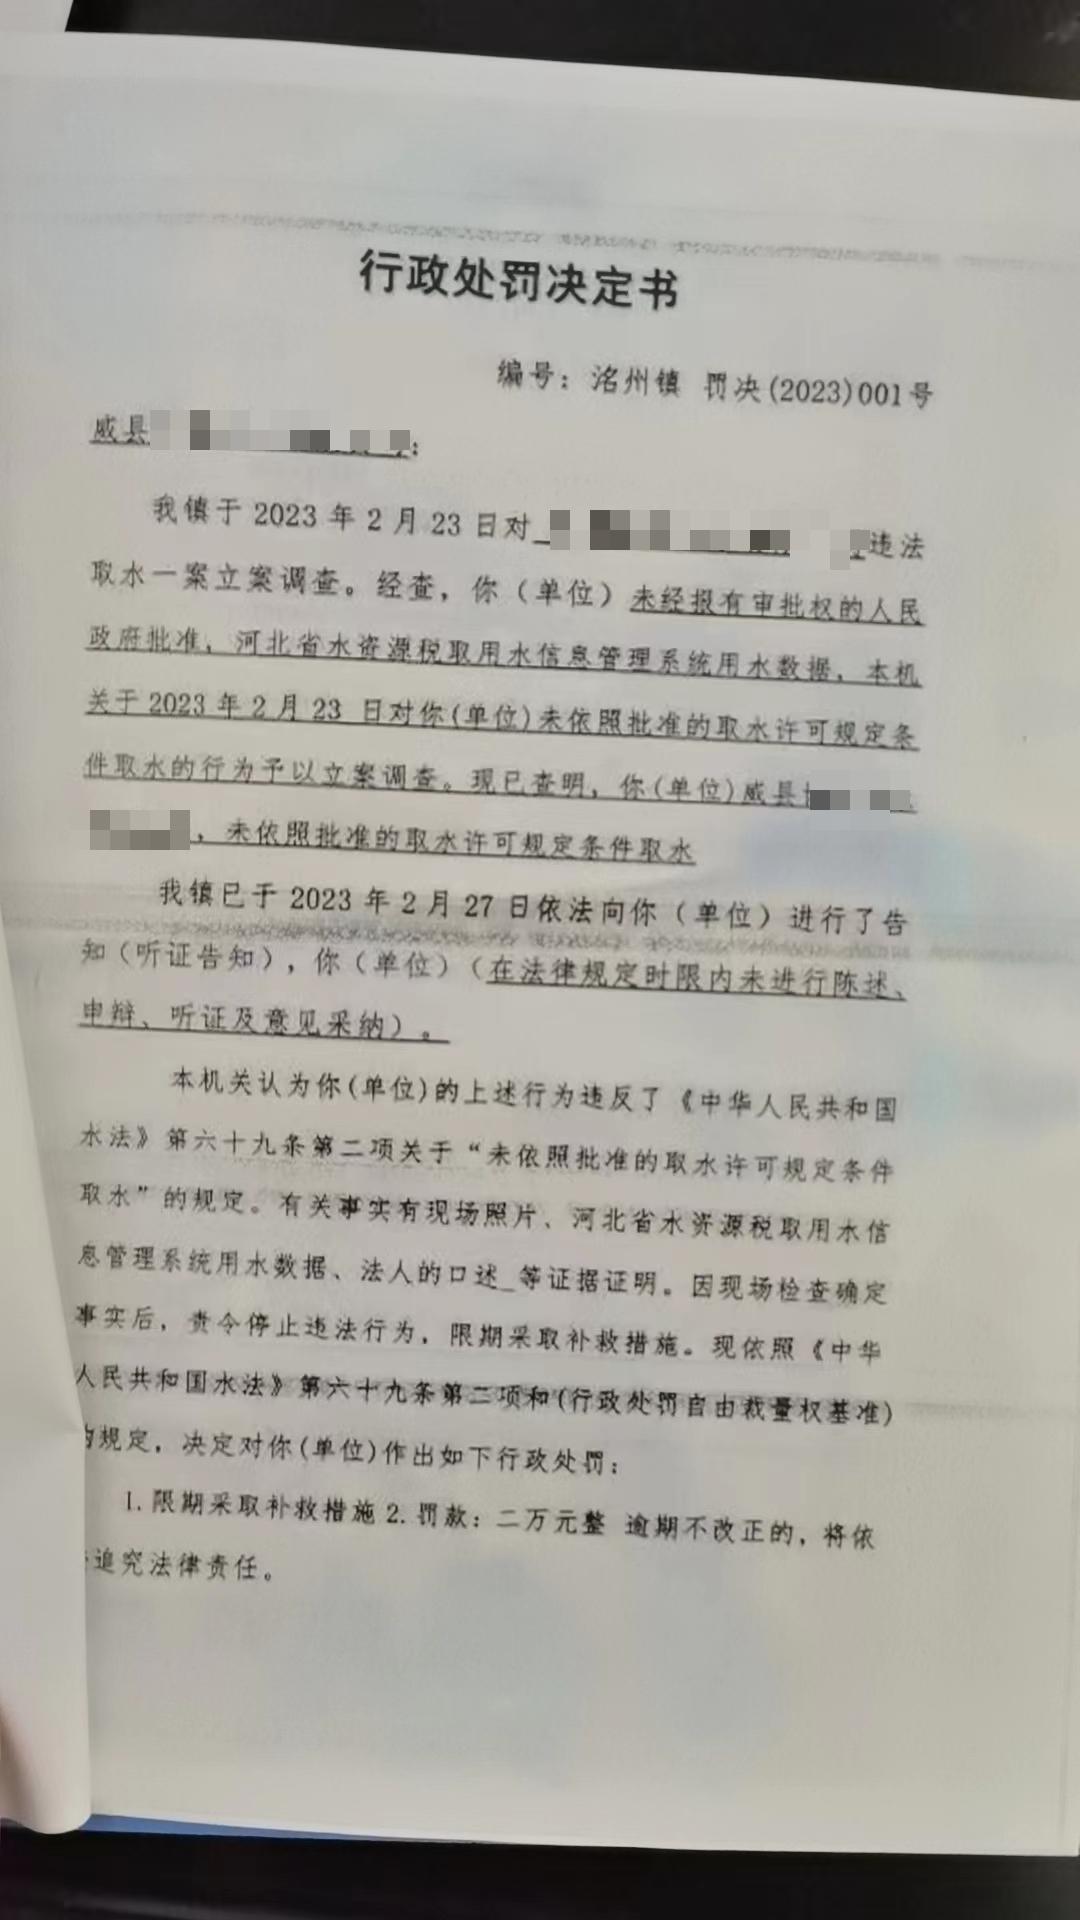 行政处罚决定书
编号：洺州镇 罚决(2023)001号
威县
我镇于 2023 年 2 月 23 日对 违法
取水一案立案调查。经查，你（单位）未经报有审批权的人民
政府批准，河北省水资源税取用水信息管理系统用水数据，本机
关于 2023 年 2 月 23 日对你(单位)未依照批准的取水许可规定条
件取水的行为予以立案调查。现已查明，你(单位)威县
，未依照批准的取水许可规定条件取水
我镇已于 2023 年 2 月 27 日依法向你（单位）进行了告
知（听证告知），你（单位）（在法律规定时限内未进行陈述、
申辩、听证及意见采纳）。
本机关认为你(单位)的上述行为违反了《中华人民共和国
水法》第六十九条第二项关于“未依照批准的取水许可规定条件
取水”的规定。有关事实有现场照片、河北省水资源税取用水信
息管理系统用水数据、法人的口述_等证据证明。因现场检查确定
事实后，责令停止违法行为，限期采取补救措施。现依照《中华
人民共和国水法》第六十九条第二项和(行政处罚自由裁量权基准)
的规定，决定对你(单位)作出如下行政处罚：
1.限期采取补救措施 2.罚款：二万元整 逾期不改正的，将依
追究法律责任。